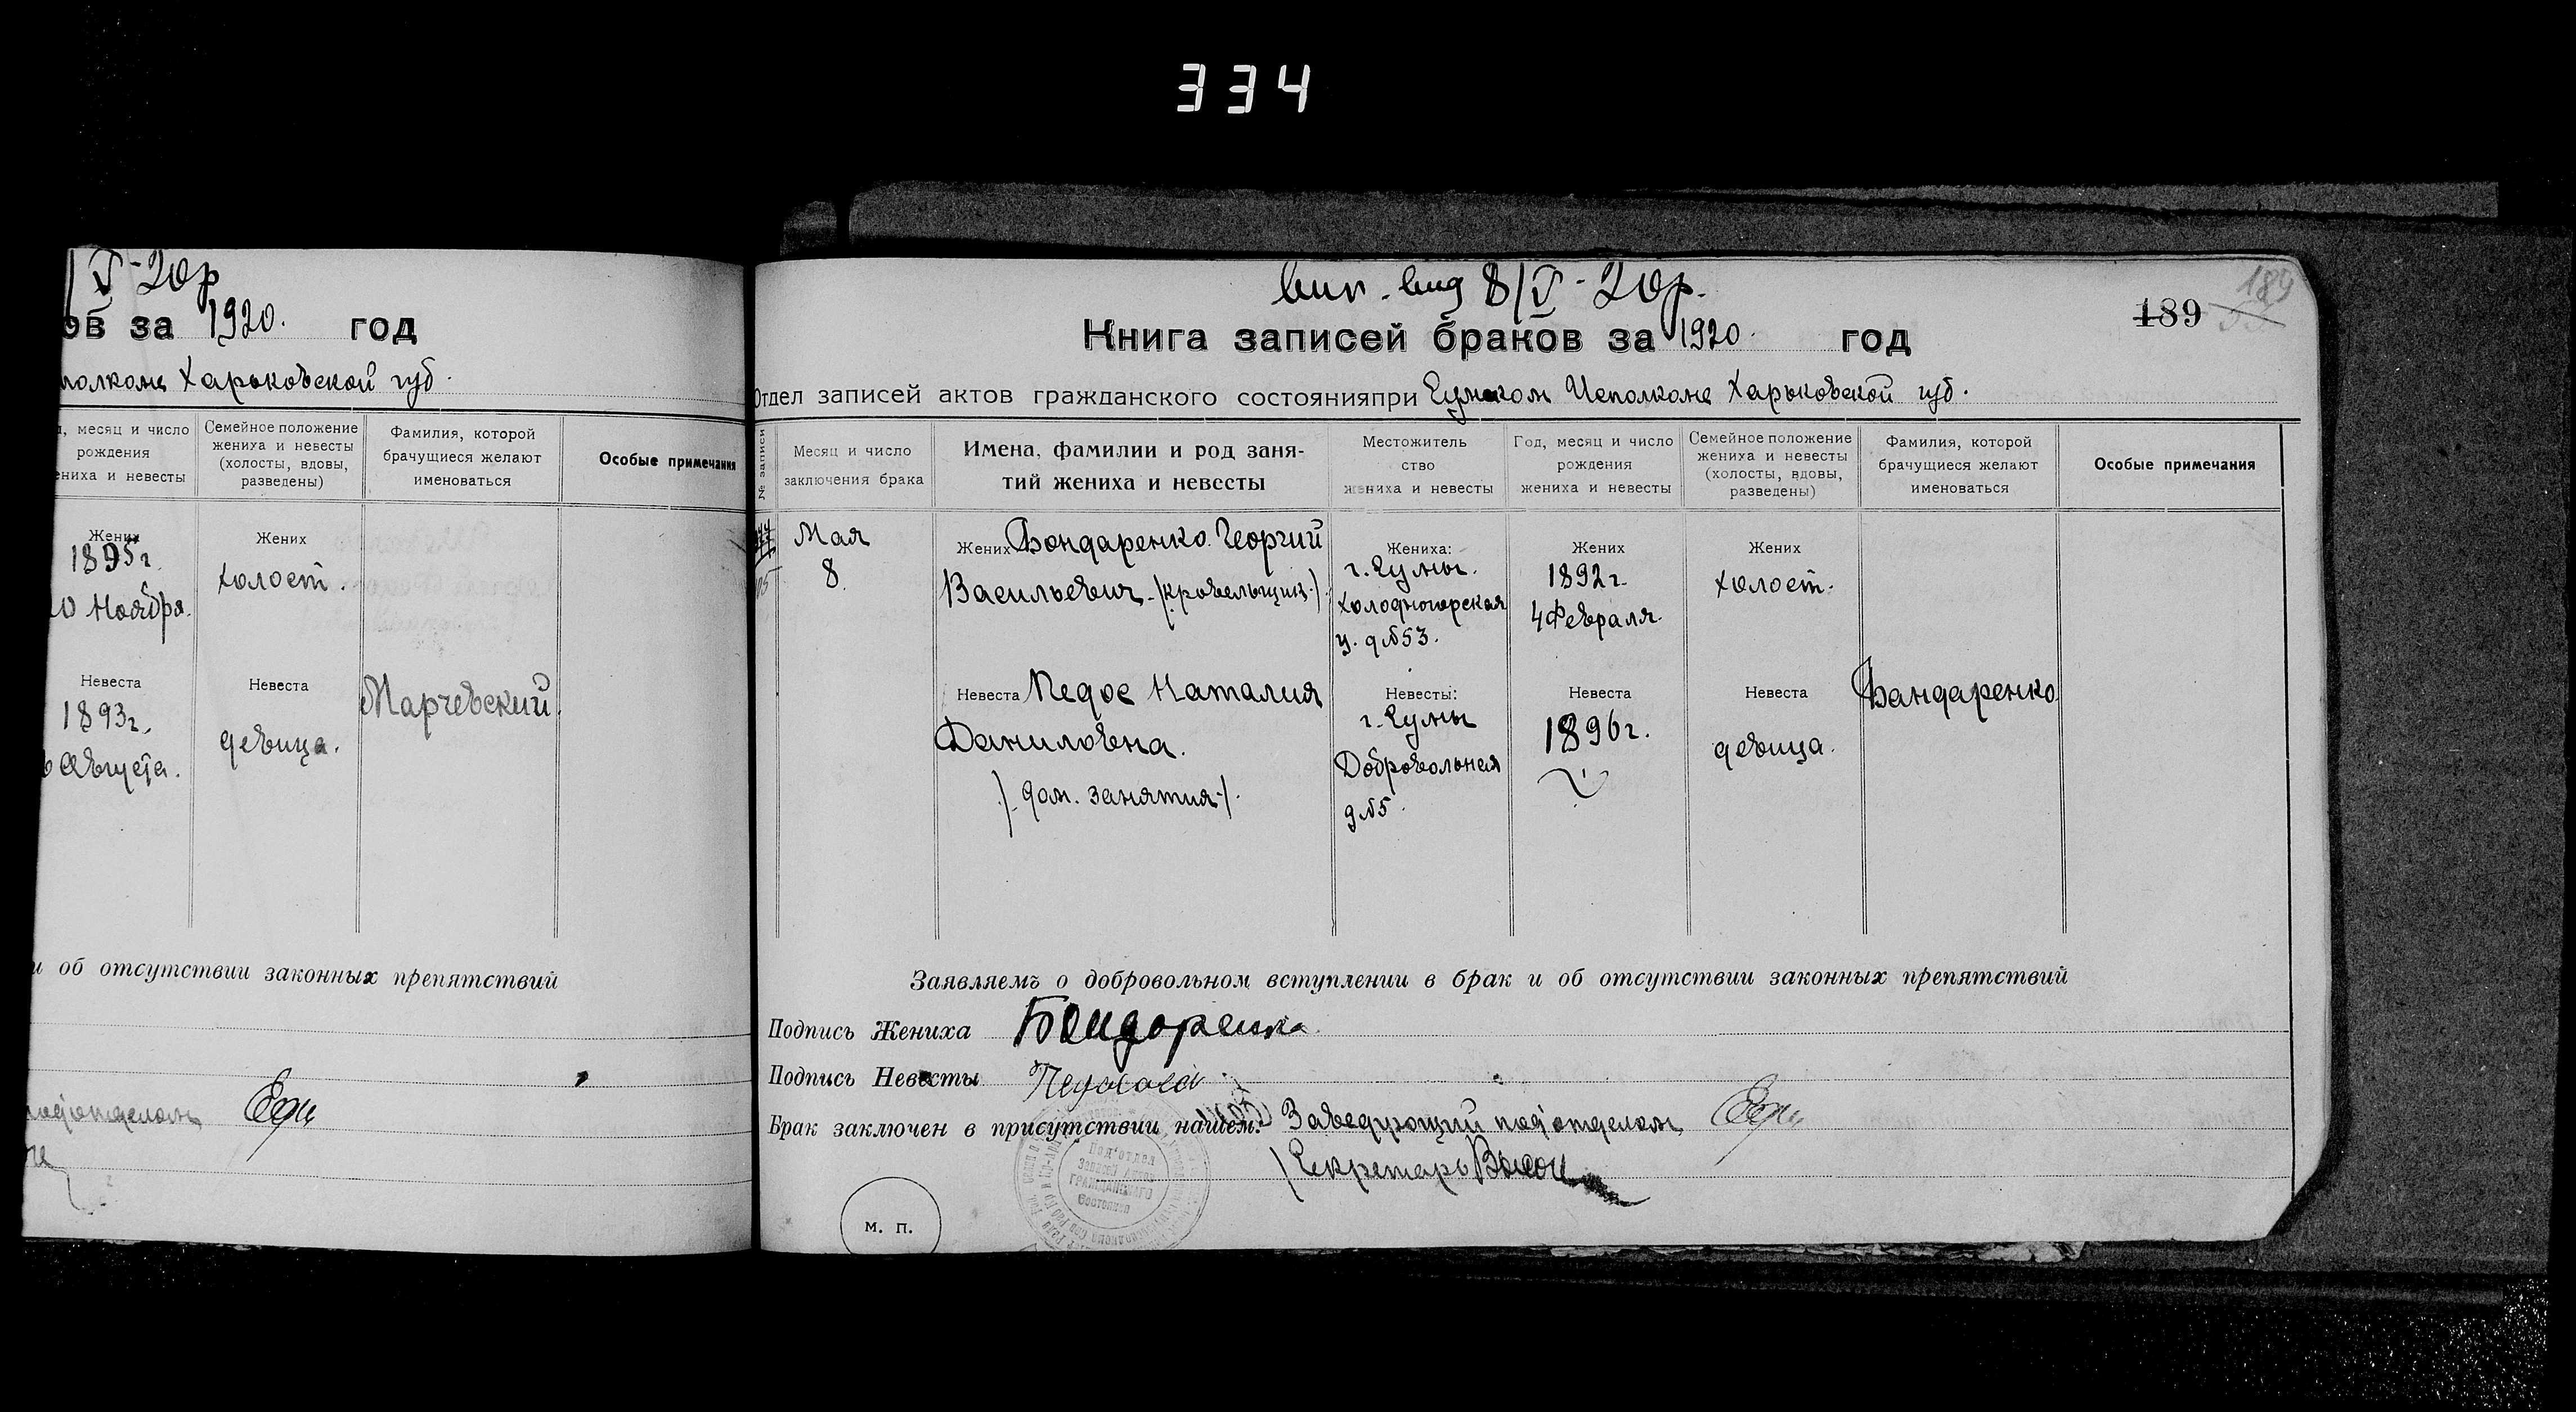 334
V-20р
ов за 1920. год
полкоме Харьковской губ.
месяц и число рождения жениха и невесты
Семейное положение жениха и невесты (холосты, вдовы, разведены)
Фамилия, которой брачущиеся желают именоваться
Особые примечания
Жених
1895г.
Ноября.
Жених
холост.
Невеста
1893г.
Августа.
Невеста
девица.
Марчевский.
и об отсутствии законных препятствий
под'отделом
вип. вид 8/V-20р.
189
189
Книга записей браков за 1920. год
Отдел записей актов гражданского состоянияпри Сумском Исполкоме Харьковской губ.
№ записи
Месяц и число
заключения брака
Имена, фамилии и род заня-
тий жениха и невесты
Местожитель
ство
жениха и невесты
Год, месяц и число
рождения
жениха и невесты
Семейное положение
жениха и невесты
(холосты, вдовы,
разведены)
Фамилия, которой
брачущиеся желают
именоваться
Особые примечания
Мая
8.
Жених Бондаренко Георгий
Васильевич (кровельщик)
Жениха:
г. Сумы.
Холодногорская
у. д №53.
Жених
1892г.
4 Февраля.
Жених
холост.
Невеста Педос Наталия
Даниловна.
/дом. занятия/.
Невесты:
г. Сумы
Добровольная
д №5.
Невеста
1896г.
Невеста
девица.
Бандаренко
Заявляемъ о добровольном вступлении в брак и об отсутствии законных препятствий
Подпись Жениха Бондоренка
Подпись Невесты
Брак заключен в присутствии нашем: Заведующий под'отделом
Секретарь
Под'отдел
Записей Актов
ГРАЖДАНСКОГО
Состояния
м. п.